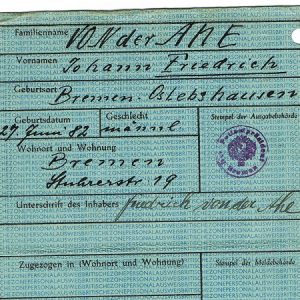 Familienname
VON der AHE
Vornamen
Johann Friedrich
Geburtsort
Bremen-Oslebshausen
Geburtsdatum Geschlecht Stempel der Ausgabebehörde
27 Juni 82 männl.
Wohnort und Wohnung
Bremen
Stuhrerstr 19
Polizeipräsident
Bremen
Unterschrift des Inhabers Friedrich von der Ahe
Zugezogen in (Wohnort und Wohnung) Stempel der Meldebehörde